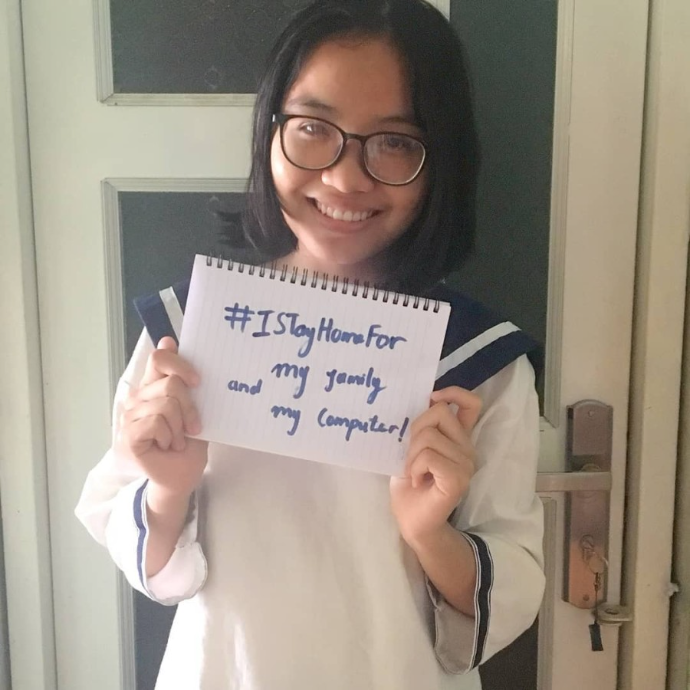 #IStayHomeFor
my family
and my computer!